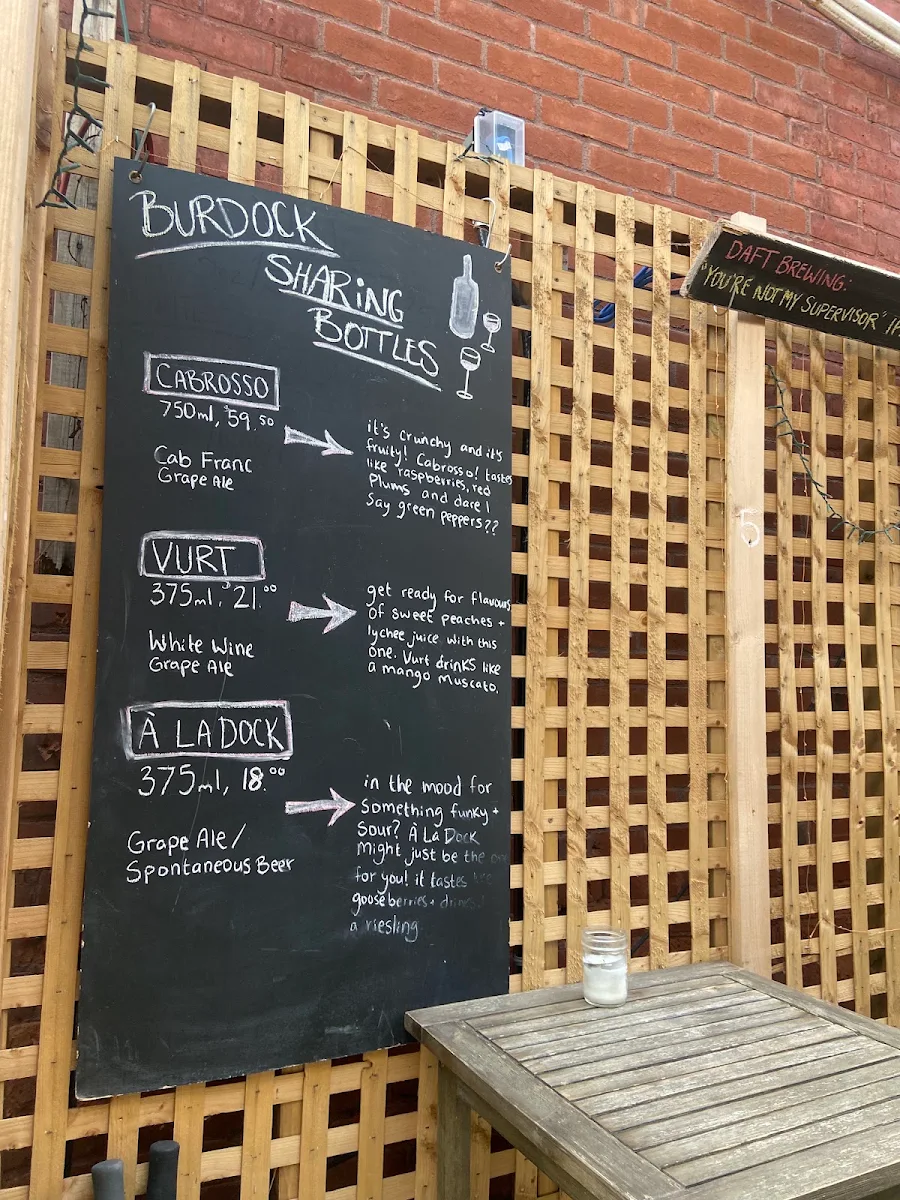 BURDOCK
SHARING
BOTTLES
CABROSSO
750ml, $59.50
Cab Franc
Grape Ale
it's crunchy and it's
fruity! Cabrosso! tastes
like raspberries, red
plums and dare I
say green peppers??
VURT
375ml, $21.00
White Wine
Grape Ale
get ready for flavours
of sweet peaches +
lychee juice with this
one. Vurt drinks like
a mango muscato.
À LA DOCK
375ml, 18.00
Grape Ale/
Spontaneous Beer
in the mood for
something funky +
sour? À La Dock
might just be the
for you! it tastes
gooseberries +
a riesling
DAFT BREWING:
"YOU'RE NOT MY SUPERVISOR"
5